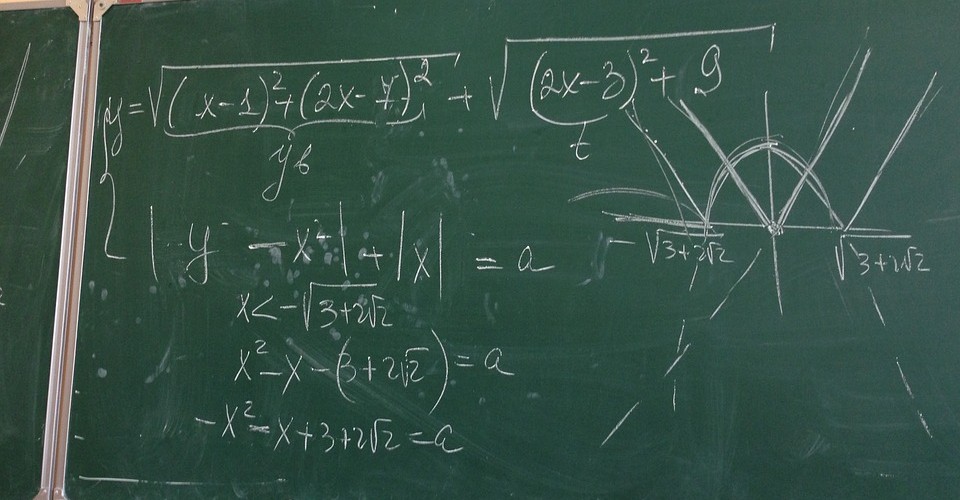 y = √((x-1)²+(2x-7)²) + √((2x-3)²+9)
yв
t
| y - x² | + |x| = a
x < -√(3+2√2)
x² - x - (3+2√2) = a
-x² - x + 3 + 2√2 = a
-√(3+2√2)
√(3+2√2)